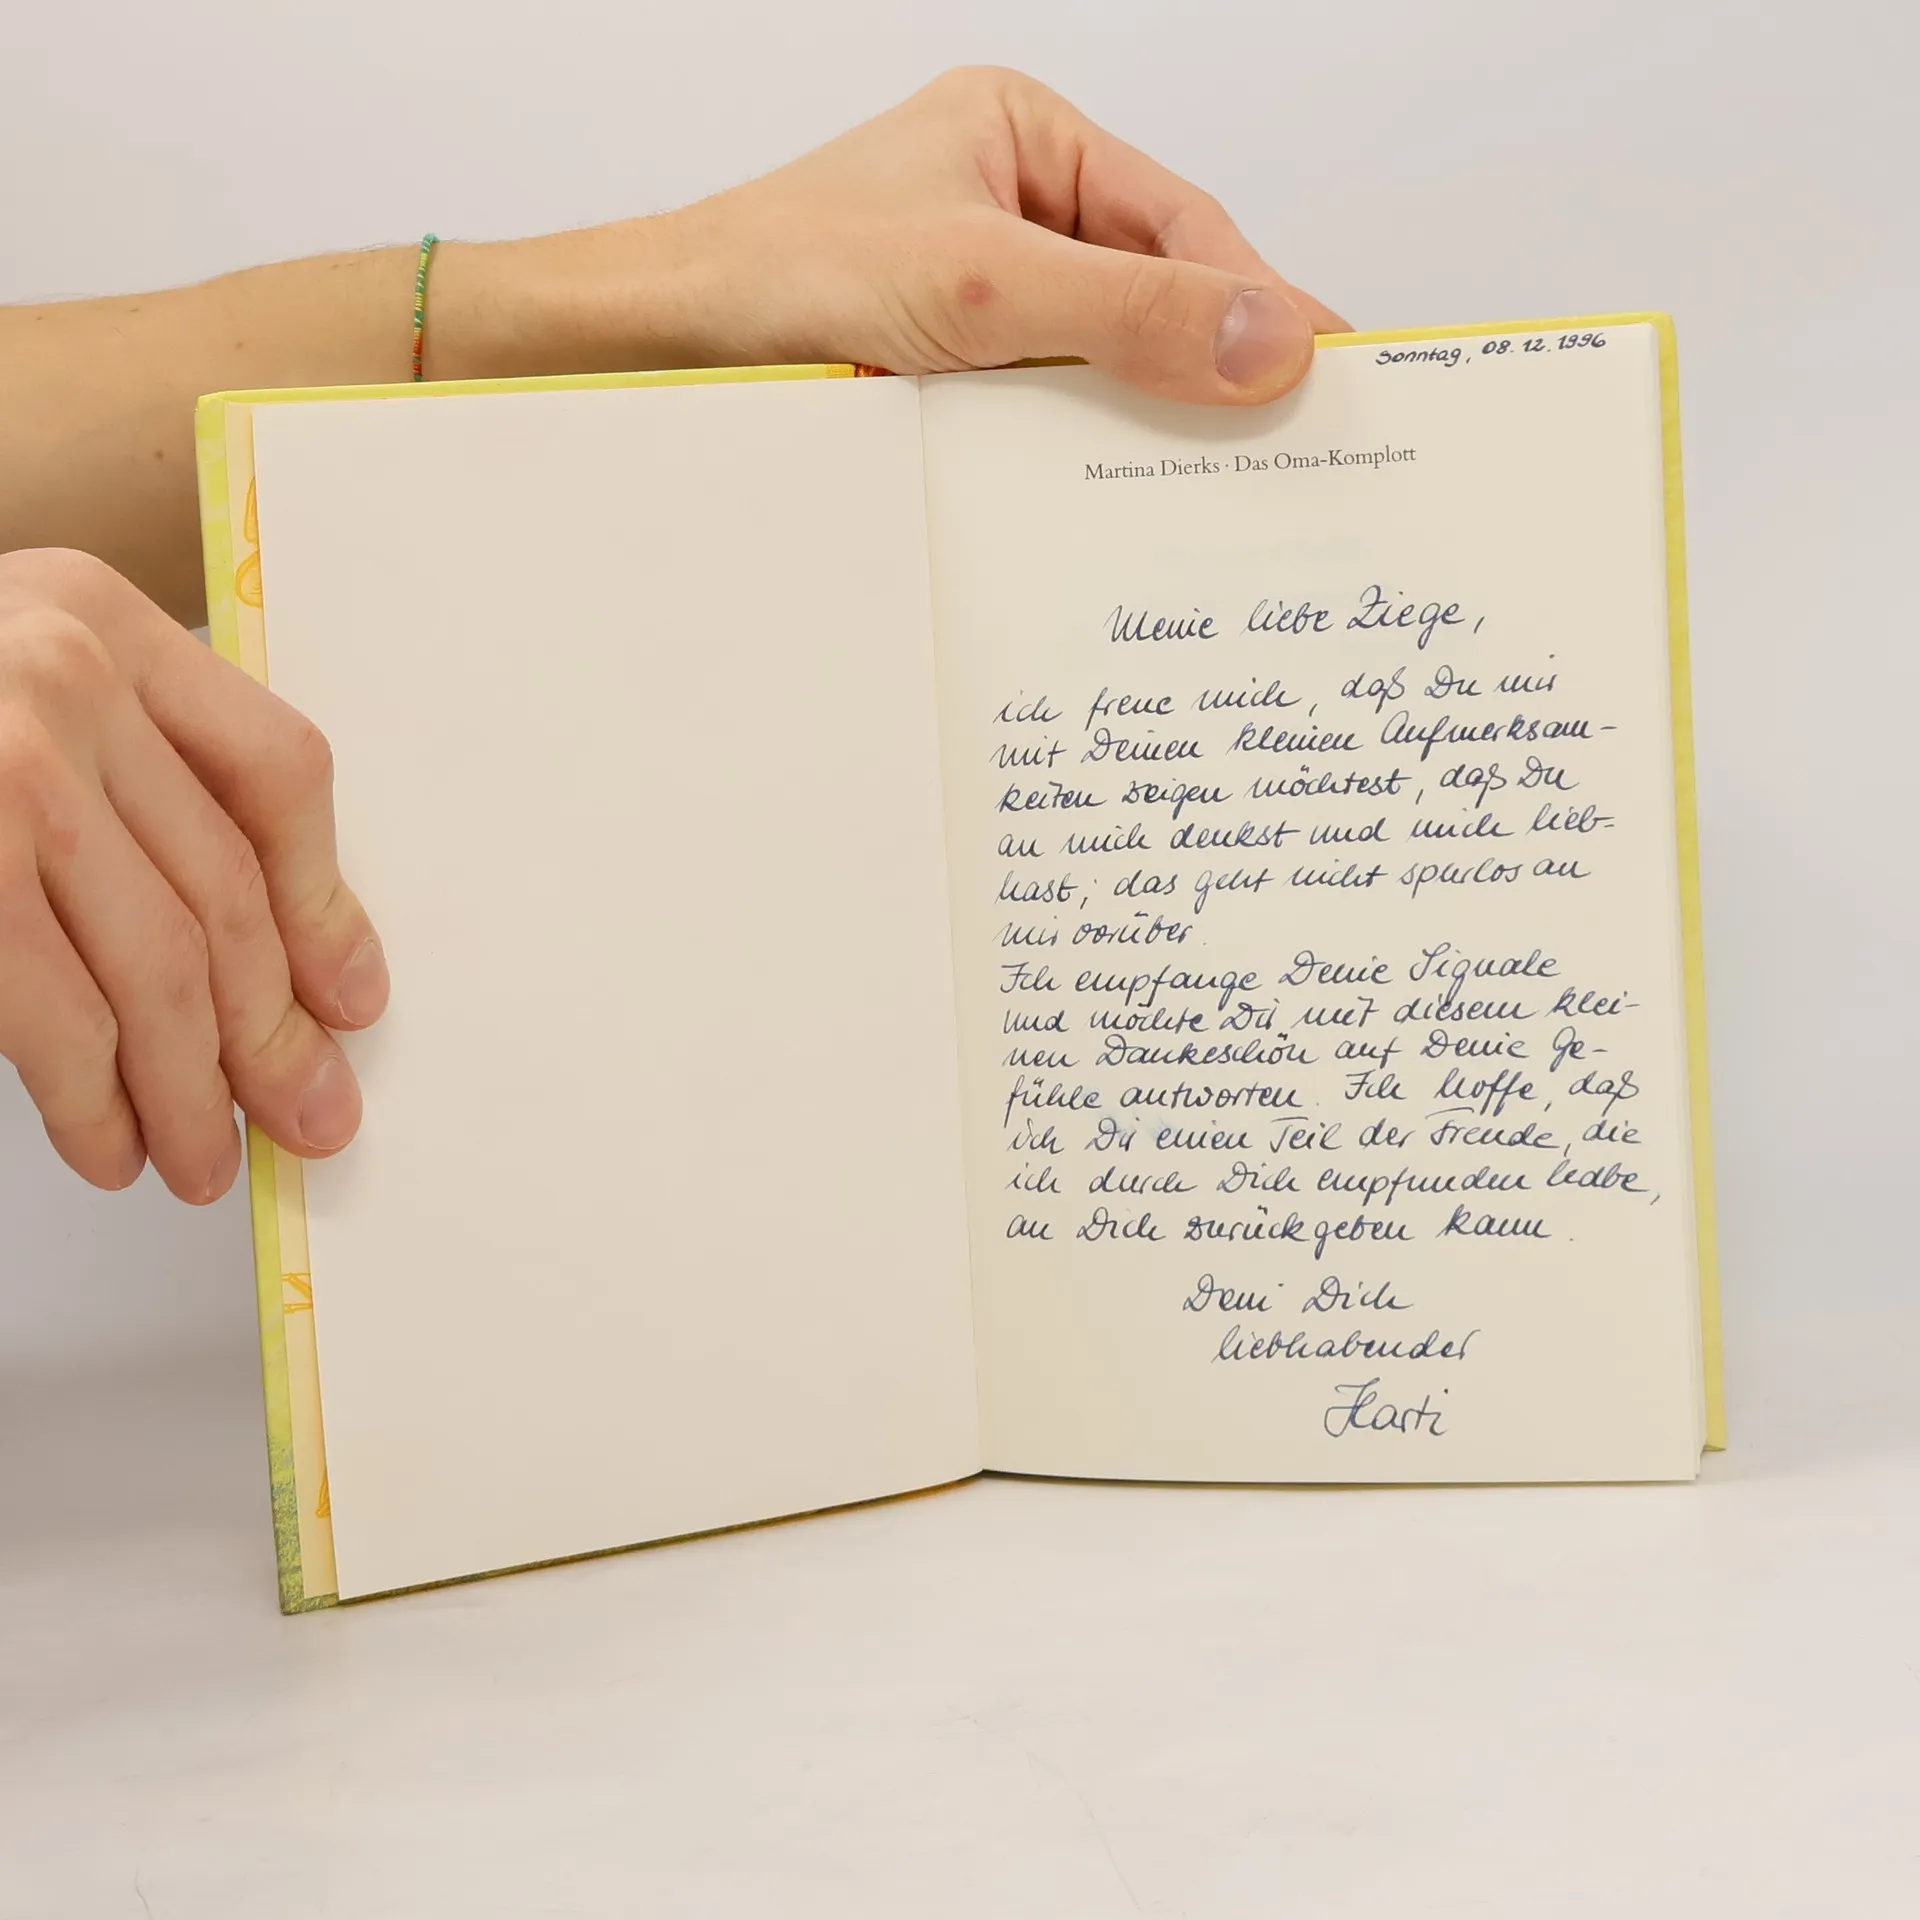 Sonntag, 08.12.1996
Martina Dierks · Das Oma-Komplott
Meine liebe Ziege,
ich freue mich, daß Du mir
mit Deinen kleinen Aufmerksam-
keiten zeigen möchtest, daß Du
an mich denkst und mich lieb-
hast; das geht nicht spurlos an
mir vorüber.
Ich empfange Deine Signale
und möchte Dir mit diesem klei-
nen Dankeschön auf Deine Ge-
fühle antworten. Ich hoffe, daß
ich Dir einen Teil der Freude, die
ich durch Dich empfunden habe,
an Dich zurückgeben kann.
Dein Dich
liebhabender
Harti